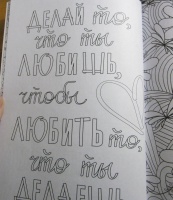 ДЕЛАЙ то,
что ты
ЛЮБИШЬ,
чтобы
ЛЮБИТЬ то,
что ты
ДЕЛАЕШЬ